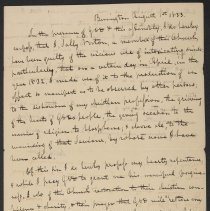 Bennington August 1st 1833.
In the presence of God & this assembly I do hereby
confess, that I, Sally Norton, a member of this church,
have been guilty of the vicious use of intoxicating drink
particularly, that on a certain day in April, in the
year 1832 I made use of it to the production of an
effect so manifest as to be observed by other persons,
to the dishonour of my christian profession, the grieving
of the hearts of Gods people, the giving occasion to the
enemies of religion to blaspheme, & above all, to the
wounding of that Saviour, by whose name I have
been called.
Of this sin I do hereby profess my hearty repentance,
& while I pray God to grant me his merciful forgive-
ness, I ask of this Church restoration to their christian con-
fidence & charity, & their prayers that God will return me